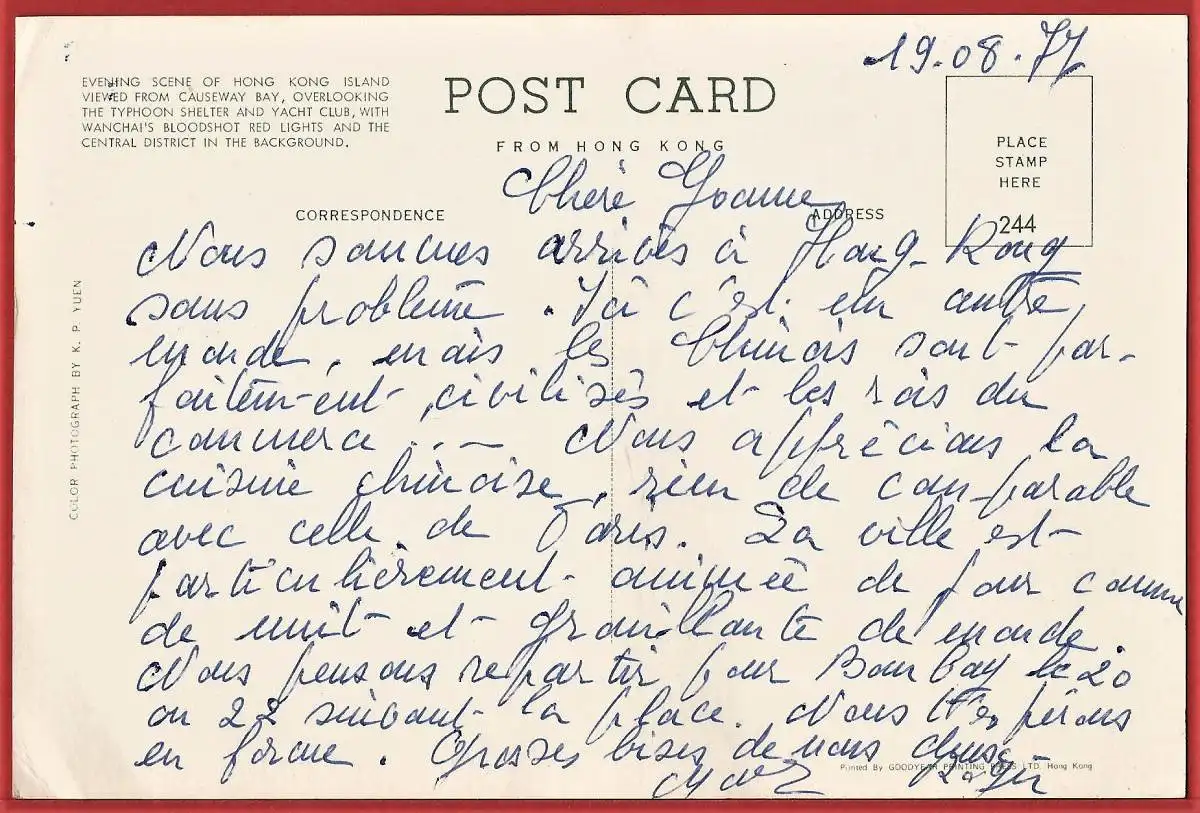 19.08.77
EVENING SCENE OF HONG KONG ISLAND
VIEWED FROM CAUSEWAY BAY, OVERLOOKING
THE TYPHOON SHELTER AND YACHT CLUB, WITH
WANCHAI'S BLOODSHOT RED LIGHTS AND THE
CENTRAL DISTRICT IN THE BACKGROUND.
POST CARD
FROM HONG KONG
PLACE
STAMP
HERE
244
CORRESPONDENCE
ADDRESS
COLOR PHOTOGRAPH BY K. P. YUEN
Chère Yoanne
Nous sommes arrivés à Hong-Kong
sans problème. Ici c'est un autre
monde, mais les Chinois sont par-
faitement civilisés et les rois du
commerce... Nous apprécions la
cuisine chinoise, rien de comparable
avec celle de Paris. La ville est
particulièrement animée de jour comme
de nuit et grouillante de monde.
Nous pensons repartir pour Bombay le 20
ou 22 suivant la place. Nous
en forme. Grosses bises de nous deux
Roger
Printed By GOODYEAR PRINTING PRESS LTD. Hong Kong